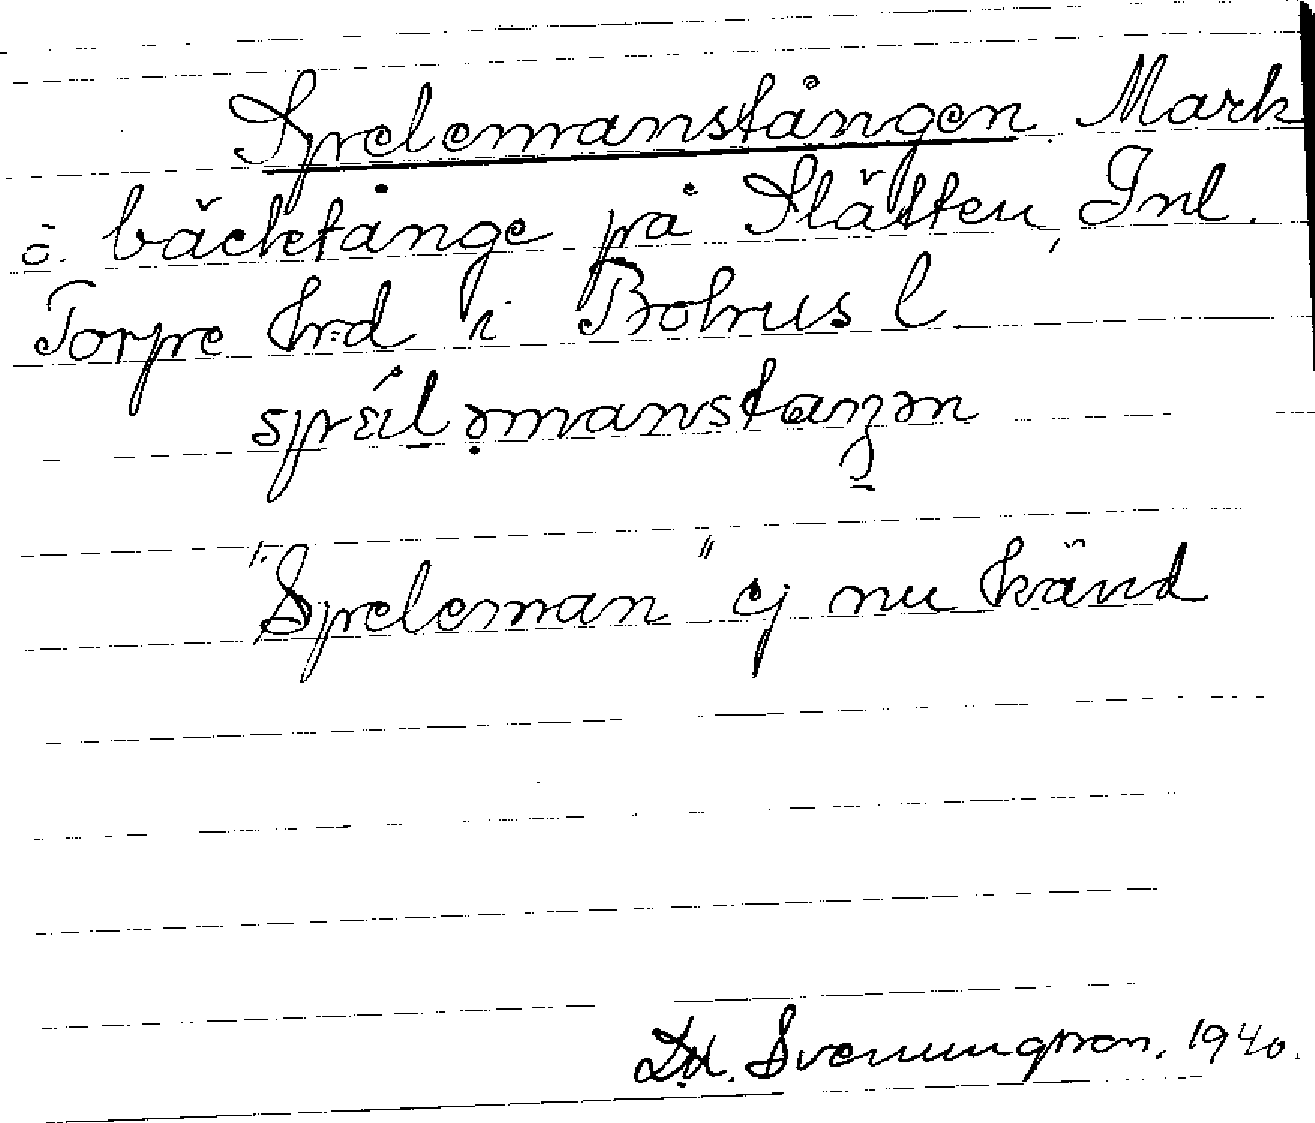 Spelemanstången. Mark
o. bäcktånge på Slätten, Inl.
Torpe hrd i Bohus l
"Speleman" ej nu känd
1940.